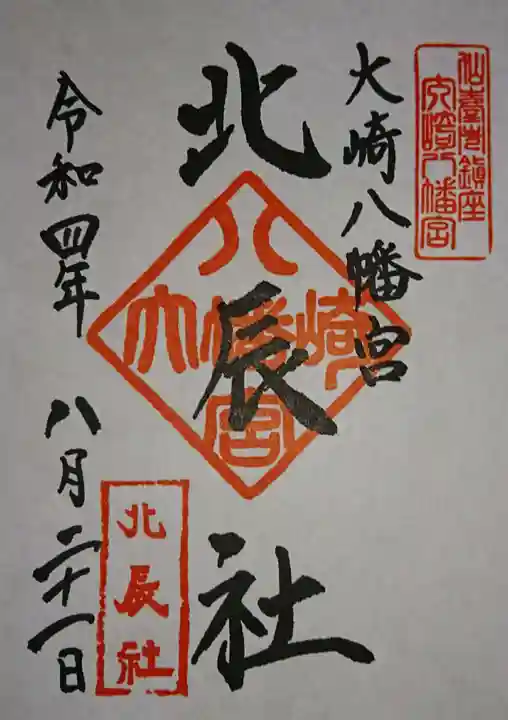 仙臺總鎮座
大崎八幡宮
大崎八幡宮
北辰社
八
大幡崎
宮
北辰社
令和四年 八月二十一日